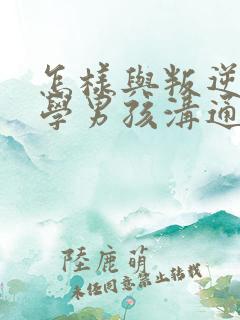 怎樣與叛逆
學男孩溝通
陸鹿萌
未经同意禁止转载